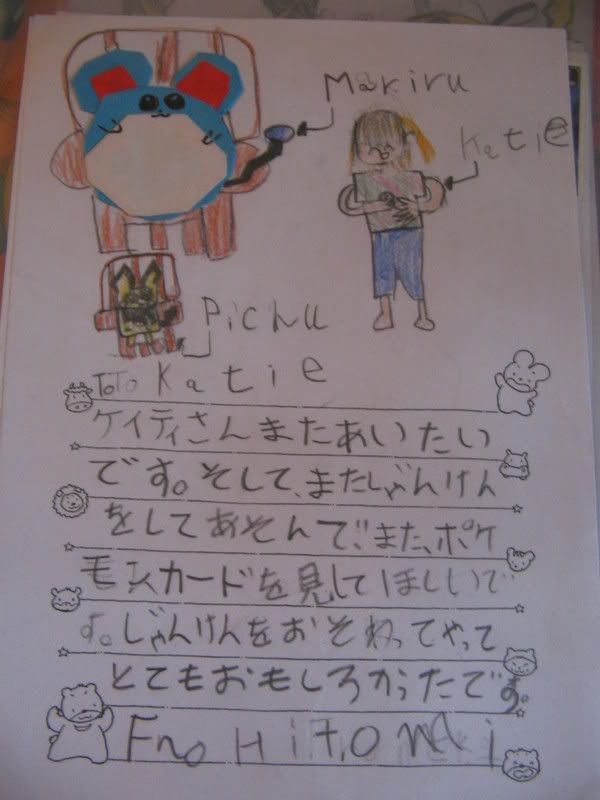 Mariru
Katie
Pichu
ToTo Katie
ケイティさんまたあいたい
です。そして、またじゃんけん
をしてあそんで、また、ポケ
モンカードを見してほしいで
す。じゃんけんをおそわってやって
とてもおもしろかったです。
Fro Hitomi